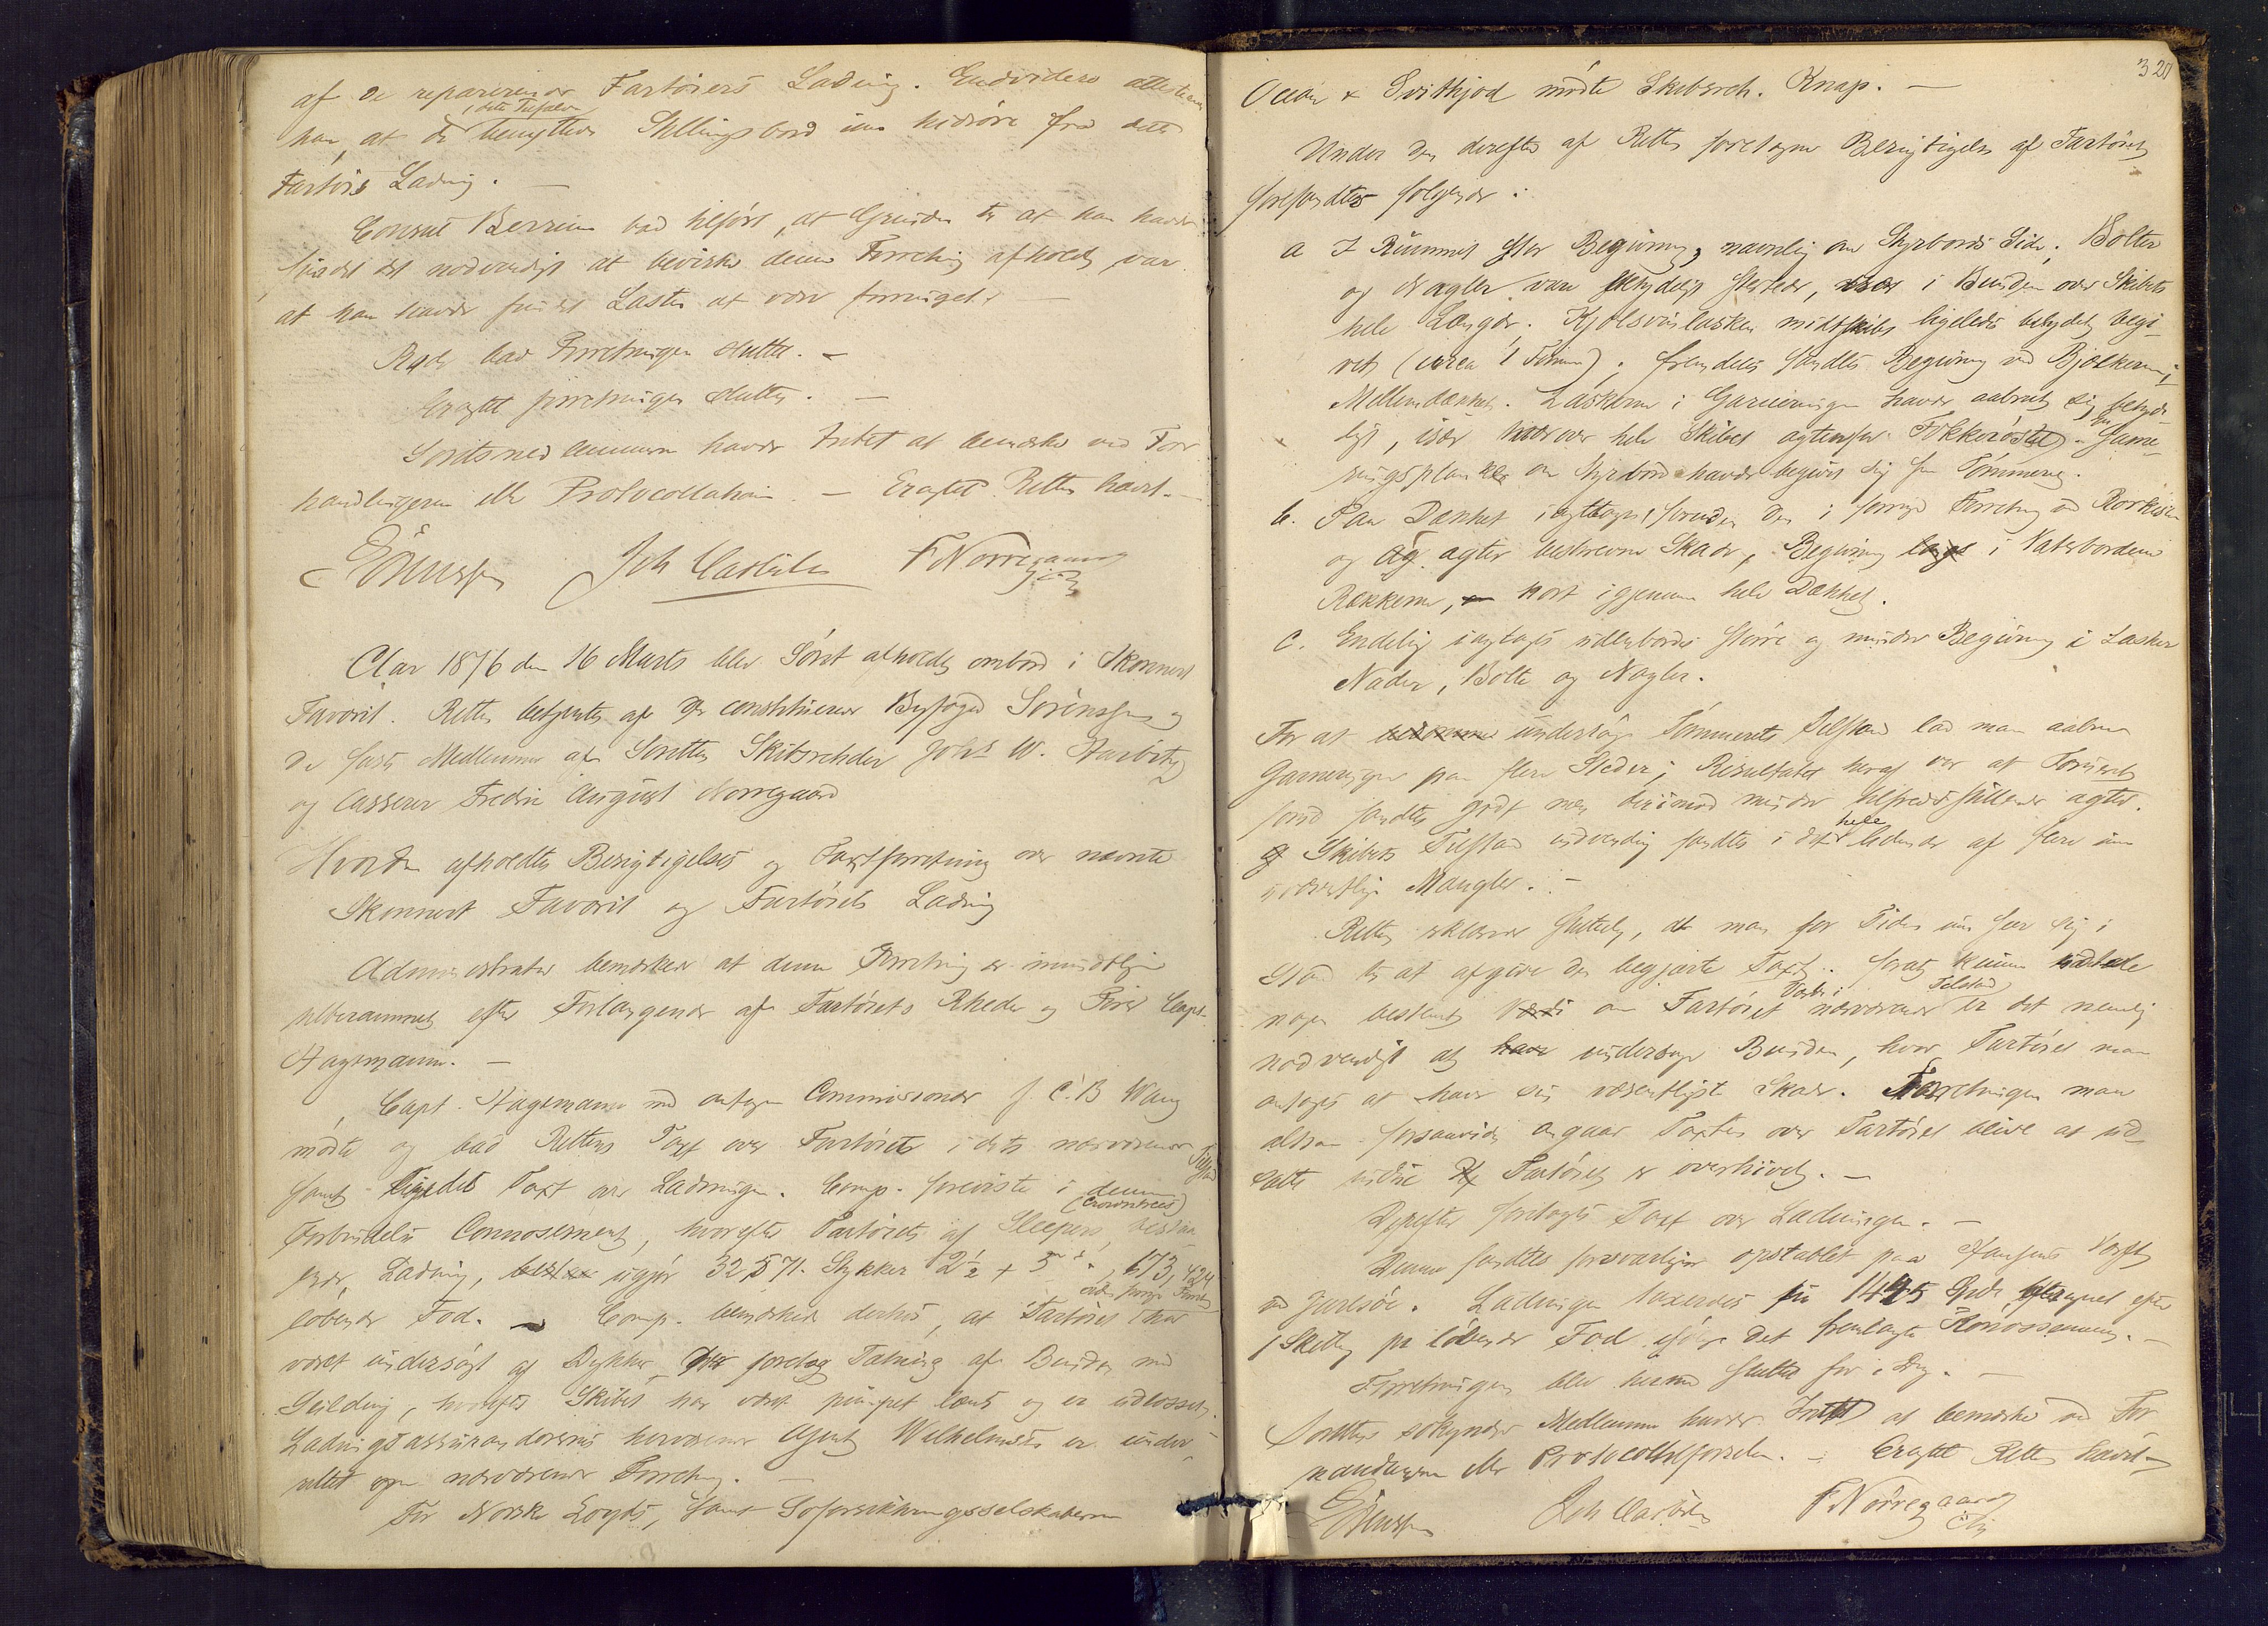 af de reparerende Fartøiers Lading. Endvidere attesterede
i dette Tilfælde
han, at de benyttede Stillingsbord ikke hidrøre fra dette
Fartøis Lading. —
Consul Berrum bad tilført, at Grunden til at han havde
fundet det nødvendigt at bevirke denne Forretning afholdt, var
at han havde fundet Lasten at være forringet. —
Rqds bad Forretningen sluttet. —
Eragtet Forretningen sluttet. —
Søretsmedlemmerne havde Intet at bemærke ved For
handlingerne eller Protocollationen. — Eragtet Retten hævet. —
Sørenssen Joh Aarbÿe F Nørregaard
Aar 1876 den 16 Marts blev Søret afholdt ombord i Skonnert
Favorit. Retten betjentes af den constituerede Byfoged Sørenssen og
de faste Medlemmer af Søretten Skibsrheder Johs W. Aarbÿe
og Casserer Fredrie August Nørregaard
Hvorda afholdtes Besigtigelses og Taxtforretning over nævnte
Skonnert Favorit og Fartøiets Lading
Administrator bemærkede at denne Forretning er mundtligen
berammet efter Forlangende af Fartøiets Rheder og Fører Capt.
Hagemann. —
Capt. Hagemann med antagen Commissionær J. C. B Wang
mødte og bad Rettens Taxt over Fartøiet i dets nærværende Tilstand
samt ligeledes Taxt over Ladningen. Comp. foreviste i denne
(Crowntrees)
Forbindelse Connosement, hvorefter Fartøiets af Sleepers, bestaa
ende, Lading, udgjør 32,571 Stykker 2½ + 5", 173,424
siden forrige Forretn
løbende Fod. — Comp. bemærkede derhos, at Fartøiet har
været undersøgt af Dykker, der foretog Tætning af Bunden med
Seilding, hvorefter Skibet har været pumpet læns og er udlosset.
Ladningsassurandørernes herværende Agent Wilhelmsen er under
rettet om nærværende Forretning. —
For Norske Loyds, samt Søforsikringsselskaberne
320
Ocean & Svithjod mødte Skibsrh. Knap. —
Under den derefter af Retten foretagne Besigtigelse af Fartøiet
forefandtes følgende:
a I Rummet stor Begivning, navnlig om Styrbords Side. Bolter
og Nagler vare betydeligt , især i Bunden over Skibets
hele Længde. Kjølsvinlasken midtskibs ligeledes betydeligt begi-
vet (circa 1 Tomme); fremdeles fandtes Begivning ved Bjælkerne i
Mellemdækket. Laskerne i Garneringen havde aabnet sig betyde
ligt, især over hele Skibet agtenfor Fokkerøstet. En Garne-
ringsplanke om Styrbord havde begivet sig fra Tømmeret.
b. Paa Dækket iagttoges, foruden den i forrige Forretning ved
og agter beskrevne Skade, Begivning i Vatersbordene
Rækkerne, kort igjennem hele Dækket.
c. Endelig iagtoges udenbords større og mindre Begivning i Lasker
Nader, Bolte og Nagler.
For at undersøge Tømmerets Tilstand lod man aabne
Garneringen paa flere Steder; Resultatet heraf var at Tømmeret
forud fandtes godt men derimod mindre tilfredsstillende agter.
hele
Skibets Tilstand udvendig fandtes i det lidende af flere ikke
uvæsentlige Mangler. —
Retten erklærede sluttelig, at man for Tiden ikke seer sig i
Stand til at afgive den begjærte Taxt. forat kunne
Værdi i Tilstand
nogen bestemt om Fartøiet nærværende er det nemlig
nødvendigt at undersøge Bunden, hvor Fartøiet man
antages at have sin væsentligste Skade. Forretningen man
altsaa forsaavidt angaar Taxten over Fartøiet blive at ud-
sætte indtil Fartøiet er overhalet. —
Derefter foretoges Taxt over Ladningen. —
Denne fandtes forsvarligen opstablet paa Hansens Værft
ved Jarlsøe. Ladningen taxeredes til 1445 Spdr beregnet efter
1 Skilling pr løbende Fod ifølge det fremlagte Konossement. —
Forretningen blev hermed sluttet for i Dag. —
Sørettens søkyndige Medlemmer havde Intet at bemærke ved For
handlingerne eller Protocoltilførselen. — Eragtet Retten hævet —
Sørenssen Joh Aarbÿe F Nørregaard